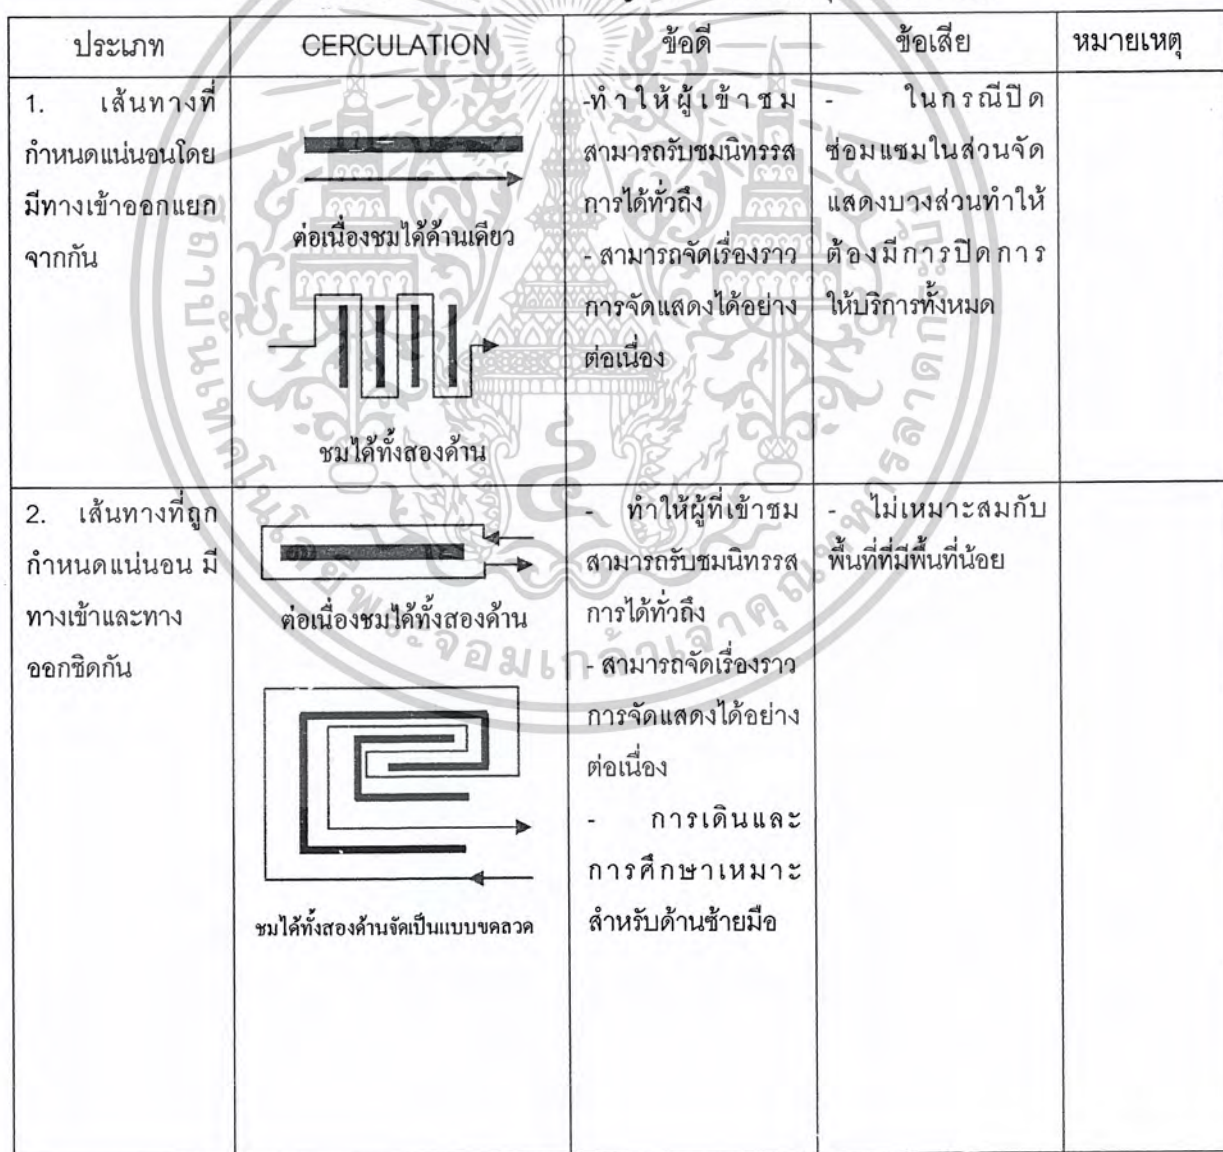 ประเภท
CERCULATION
ข้อดี
ข้อเสีย
หมายเหตุ
1. เส้นทางที่
กำหนดแน่นอนโดย
มีทางเข้าออกแยก
จากกัน
ต่อเนื่องชมได้ด้านเดียว
ชมได้ทั้งสองด้าน
-ทำให้ผู้เข้าชม
สามารถรับชมนิทรรส
การได้ทั่วถึง
- สามารถจัดเรื่องราว
การจัดแสดงได้อย่าง
ต่อเนื่อง
- ในกรณีปิด
ซ่อมแซมในส่วนจัด
แสดงบางส่วนทำให้
ต้องมีการปิดการ
ให้บริการทั้งหมด
2. เส้นทางที่ถูก
กำหนดแน่นอน มี
ทางเข้าและทาง
ออกชิดกัน
ต่อเนื่องชมได้ทั้งสองด้าน
ชมได้ทั้งสองด้านจัดเป็นแบบขดลวด
- ทำให้ผู้ที่เข้าชม
สามารถรับชมนิทรรส
การได้ทั่วถึง
- สามารถจัดเรื่องราว
การจัดแสดงได้อย่าง
ต่อเนื่อง
- การเดินและ
การศึกษาเหมาะ
สำหรับด้านซ้ายมือ
- ไม่เหมาะสมกับ
พื้นที่ที่มีพื้นที่น้อย
สถาบันเทคโนโลยีพระจอมเกล้าเจ้าคุณทหารลาดกระบัง